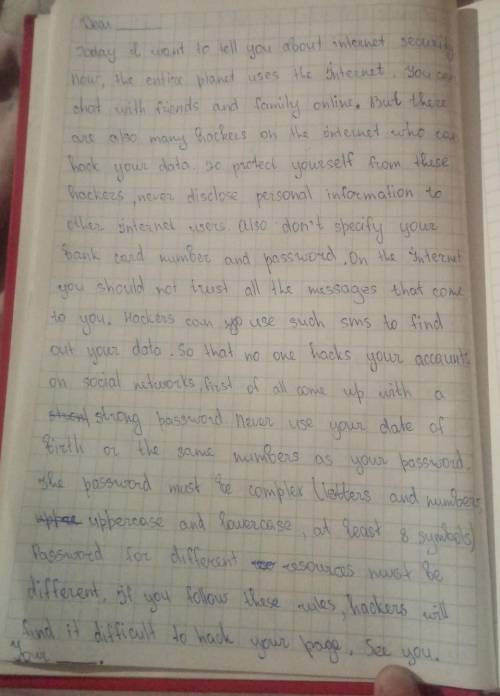 Dear ______
Today I want to tell you about internet security
now, the entire planet uses the internet. You can
chat with friends and family online. But there
are also many hackers on the internet who can
hack your data. So protect yourself from these
hackers, never disclose personal information to
other internet users. Also don't specify your
bank card number and password. On the internet
you should not trust all the messages that come
to you. Hackers can use such sms to find
out your data. So that no one hacks your accounts
on social networks, first of all come up with a
strong password. Never use your date of
birth or the same numbers as your password.
The password must be complex (letters and numbers,
uppercase and lowercase, at least 8 symbols)
Password for different resources must be
different. If you follow these rules, hackers will
find it difficult to hack your page. See you.
Your ____.